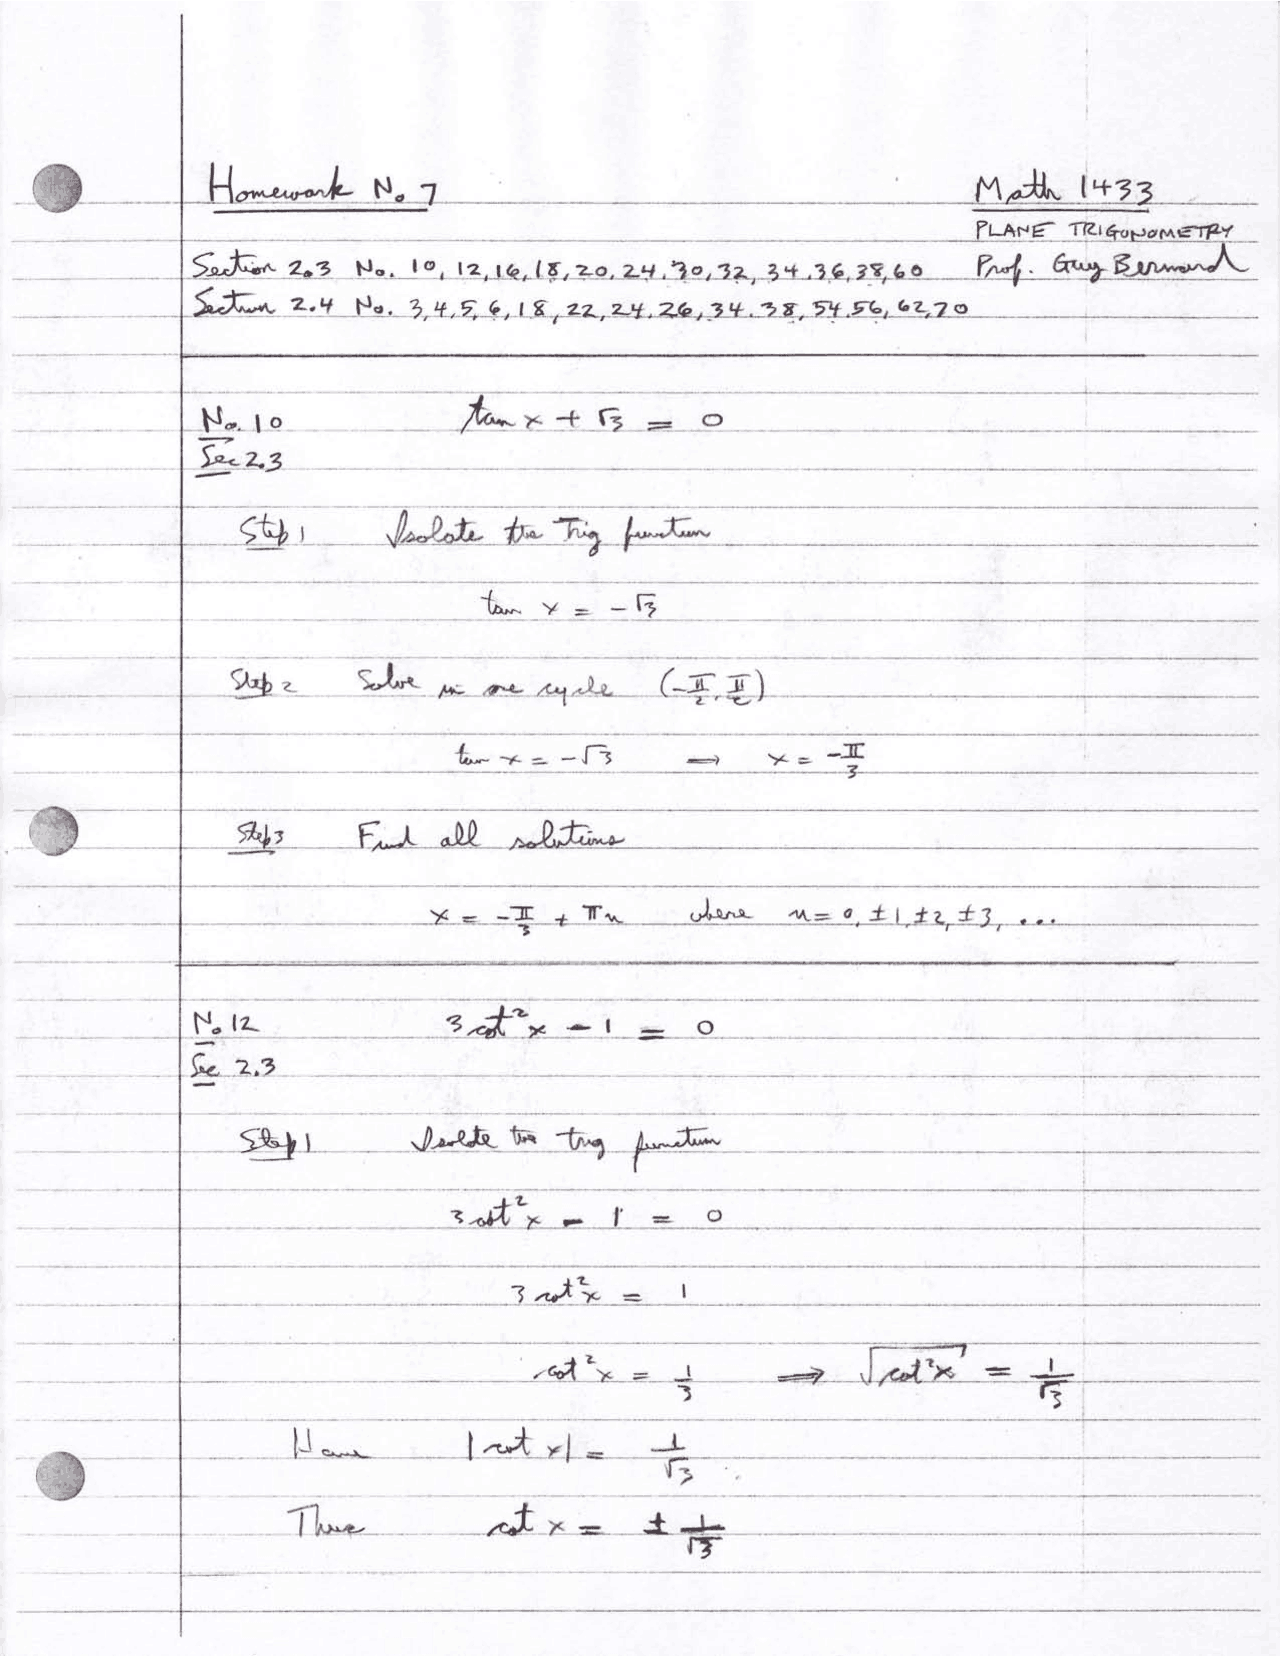 Homework No. 7 Math 1433
PLANE TRIGONOMETRY
Section 2.3 No. 10, 12, 16, 18, 20, 24, 30, 32, 34, 36, 38, 60 Prof. Guy Bernard
Section 2.4 No. 3, 4, 5, 6, 18, 22, 24, 26, 34, 38, 54, 56, 62, 70
No. 10 tan x + √3 = 0
Sec 2.3
Step 1 Isolate the Trig function
tan x = -√3
Step 2 Solve in one cycle (-π/2, π/2)
tan x = -√3 ⟹ x = -π/3
Step 3 Find all solutions
x = -π/3 + πn where n = 0, ±1, ±2, ±3, ...
No 12 3 cot²x - 1 = 0
Sec 2.3
Step 1 Isolate the trig function
3 cot²x - 1 = 0
3 cot²x = 1
cot²x = 1/3 ⟹ √cot²x = 1/√3
Have |cot x| = 1/√3
Thus cot x = ± 1/√3